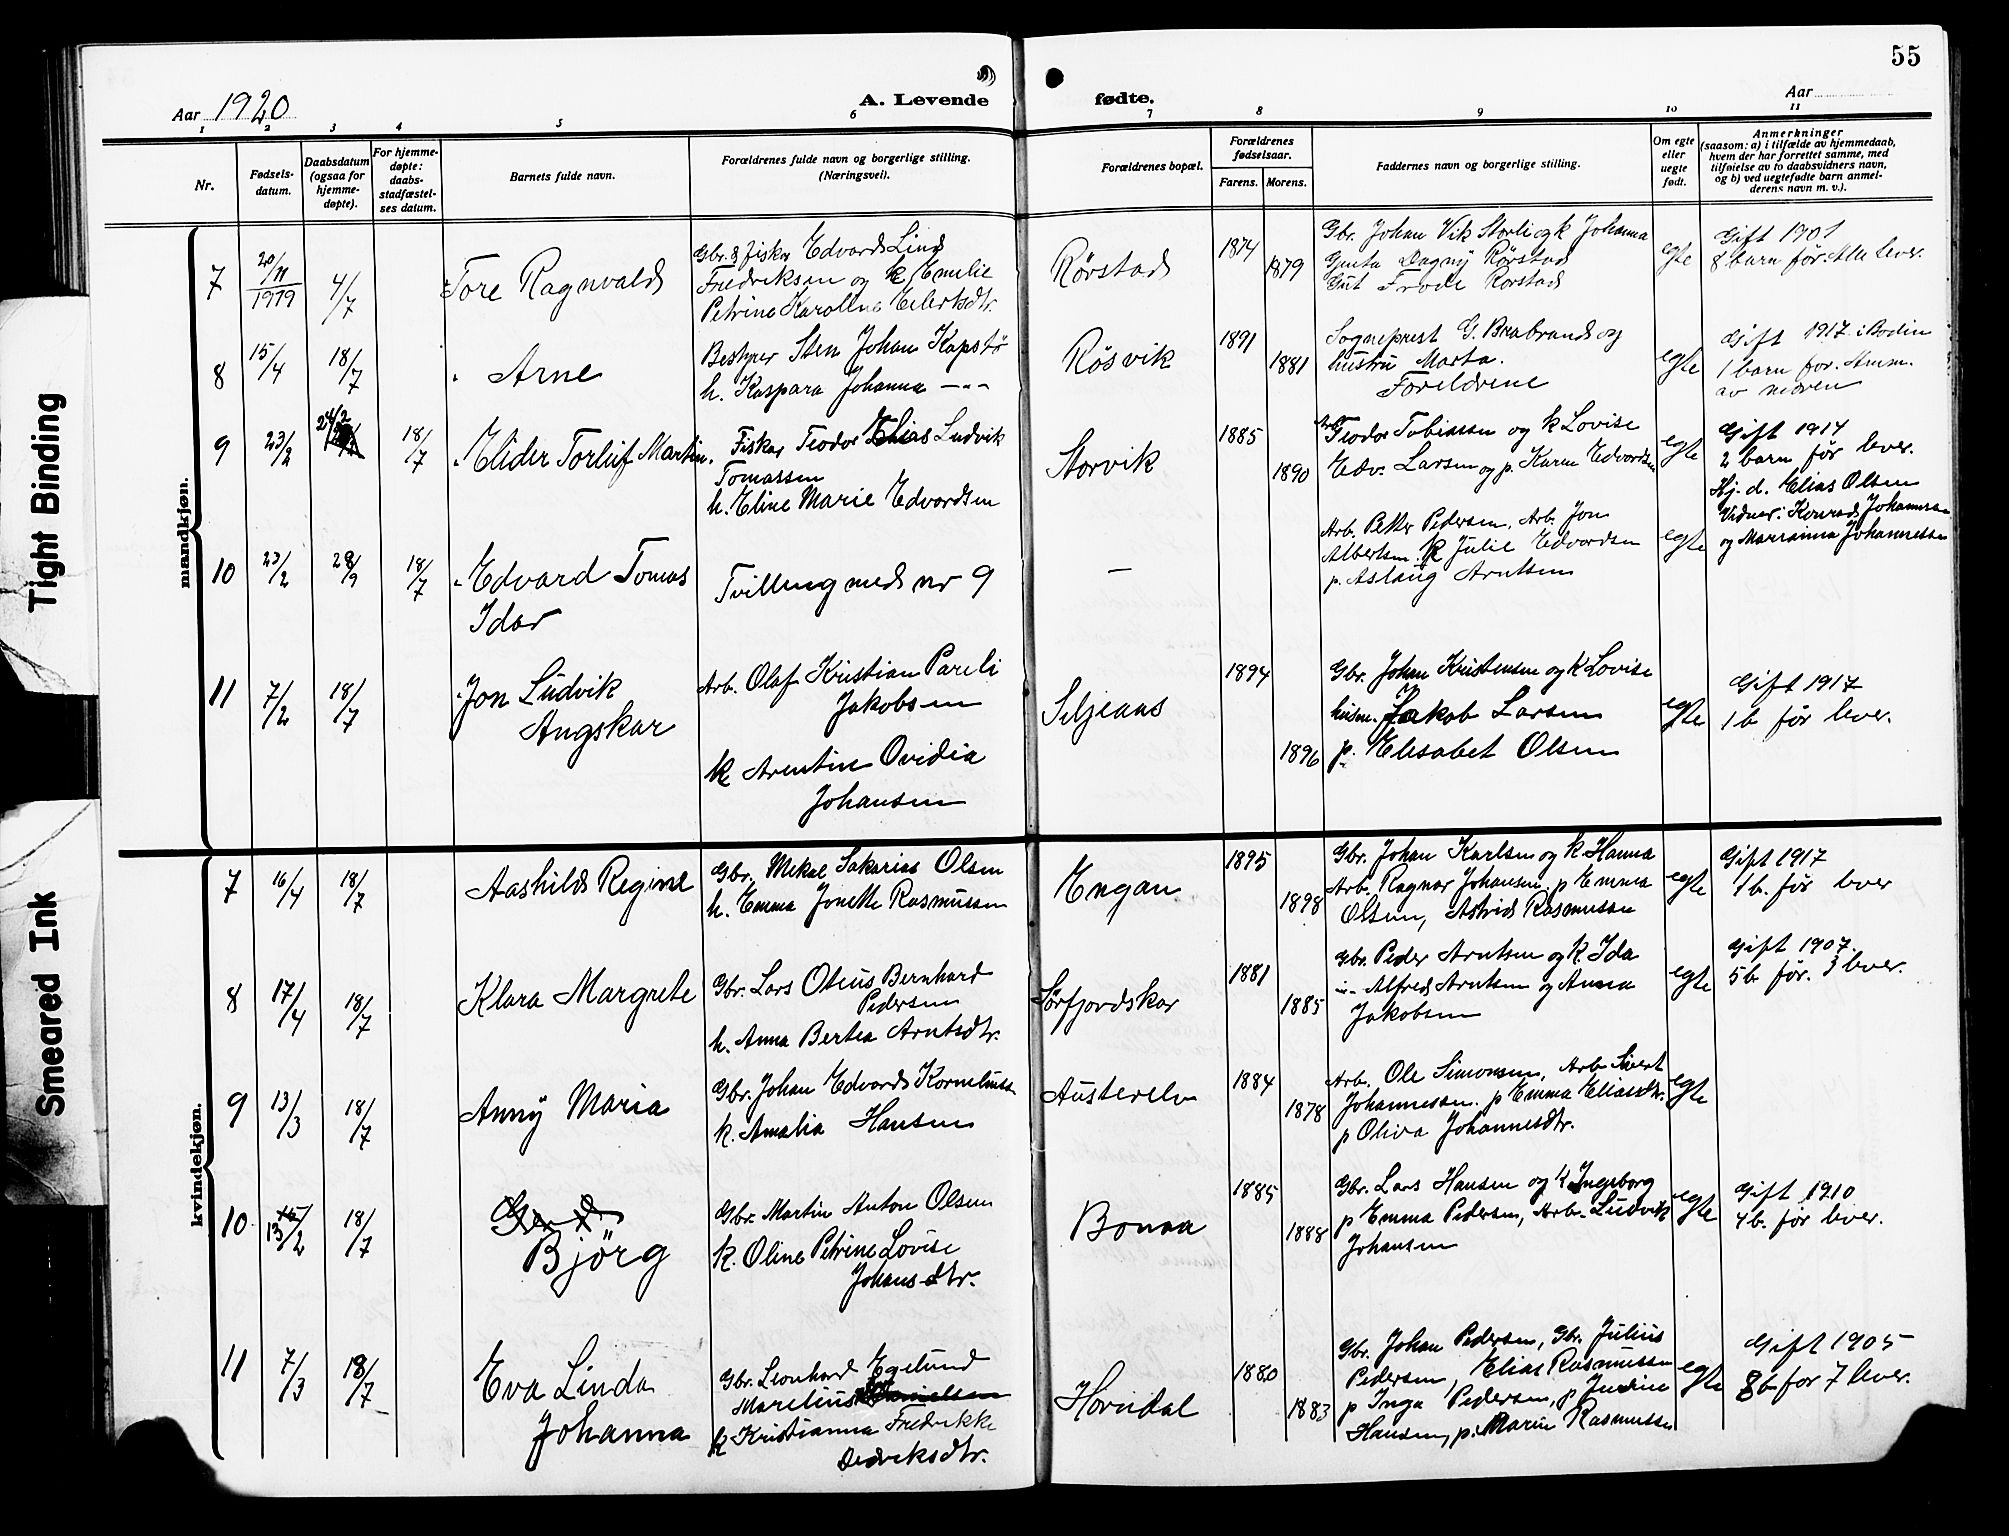 55
Aar 1920
A. Levende
fødte.
Aar
1 2 3 4 5 6 7 8 9 10 11
Nr.
Fødsels-
datum.
Daabsdatum
(ogsaa for
hjemme-
døpte).
For hjemme-
døpte:
daabs-
stadfæstel-
ses datum.
Barnets fulde navn.
Forældrenes fulde navn og borgerlige stilling.
(Næringsvei).
Forældrenes bopæl.
Forældrenes
fødselsaar.
Farens. Morens.
Faddernes navn og borgerlige stilling.
Om egte
eller
uegte
født.
Anmerkninger
(saasom: a) i tilfælde av hjemmedaab,
hvem der har forrettet samme, med
tilføielse av to daabsvidners navn,
og b) ved uegtefødte barn anmel-
derens navn m. v.).
Tight Binding
Smeared Ink
mandkjøn.
7
20/11
1919
4/7
Tore Ragnvald
Gbr. & fisker Edvard Lind
Fredriksen og k. Emelie
Petrine Karoline Eilertsdtr.
Rørstad
1874
1879
Gbr. Johan Vik Storli og k Johanna
Gjenta Dagny Rørstad
Gut Frode Rørstad
egte
Gift 1901
8 barn før. Alle lever.
8
15/4
18/7
Arne
Bestyrer Sten Johan Kapstø
h. Kaspara Johanna — " —
Røsvik
1891
1881
Sogneprest G. Brabrand og
hustru Marta.
Foreldrene
egte
Gift 1917 i Bodin
1 barn før. Anm.
av moren
9
23/2
24/2
18/7
Elider Torleif Martin.
Fisker Teodor Elias Ludvik
Tomassen
h. Eline Marie Edvardsen
Storvik
1885
1890
Teodor Tobiassen og k Lovise
Edv. Larsen og p. Karen Edvardsen
egte
Gift 1914
2 barn før lever.
Hj. d. Elias Olsen
Vidner: Konrad Johannesen
og Marianna Johannessen
10
23/2
18/7
Edvard Tomas
Idar
Tvilling med nr 9
—
Arb. Petter Pedersen, Arb. Jon
Albertsen. k Julie Edvardsen
p. Aslaug Arntsen
egte
11
7/2
18/7
Jon Ludvik
Angskar
Arb. Olaf Kristian Pareli
Jakobsen
k Arentine Ovidia
Johansen
Seljeaas
1894
1896
Gbr. Johan Kristensen og k Lovise
husm. Jakob Larsen
p. Elisabet Olsen
egte
Gift 1917
1 b. før lever.
kvindekjøn.
7
16/4
18/7
Aashild Regine
Gbr. Mekal Sakarias Olsen
h. Emma Jonette Rasmussen
Engan
1895
1898
Gbr. Johan Karlsen og k. Hanna
Arb. Ragnar Johansen. p Emma
Olsen, Astrid Rasmussen
egte
Gift 1917
1 b. før lever
8
17/4
18/7
Klara Margrete
Gbr. Lars Oteus Bernhard
Pedersen
h. Anna Bertea Arntsdtr.
Sørfjordskar
1881
1885
Gbr. Peder Arntsen og k. Ida
— " — Alfred Arntsen og Anna
Jakobsen
egte
Gift 1907.
5 b. før. 3 lever.
9
13/3
18/7
Anny Maria
Gbr. Johan Edvard Korneliussen
k. Amalia Hansen
Austerelv
1884
1878
Arb. Ole Simonsen, Arb. Sivert
Johannessen. p Emma Eliasdtr.
p Oliva Johannesdtr.
egte
10
13/2
18/7
Bjørg
Gbr. Martin Anton Olsen
k. Oline Petrine Lovise
Johansdtr.
Bonaa
1885
1888
Gbr. Lars Hansen og k Ingeborg
p Emma Pedersen, Arb. Ludvik
Johansen
egte
Gift 1910
4 b. før lever.
11
7/3
18/7
Eva Linda
Johanna
Gbr. Leonhard Egelund
Marelius
k Kristianna Fredrikke
Dedreksdtr.
Horndal
1880
1883
Gbr. Johan Pedersen, Gbr. Julius
Pedersen, Elias Rasmussen
p Inga Pedersen, p Judine
Hansen, p. Marie Rasmussen
egte
Gift 1905
8 b før 7 lever.